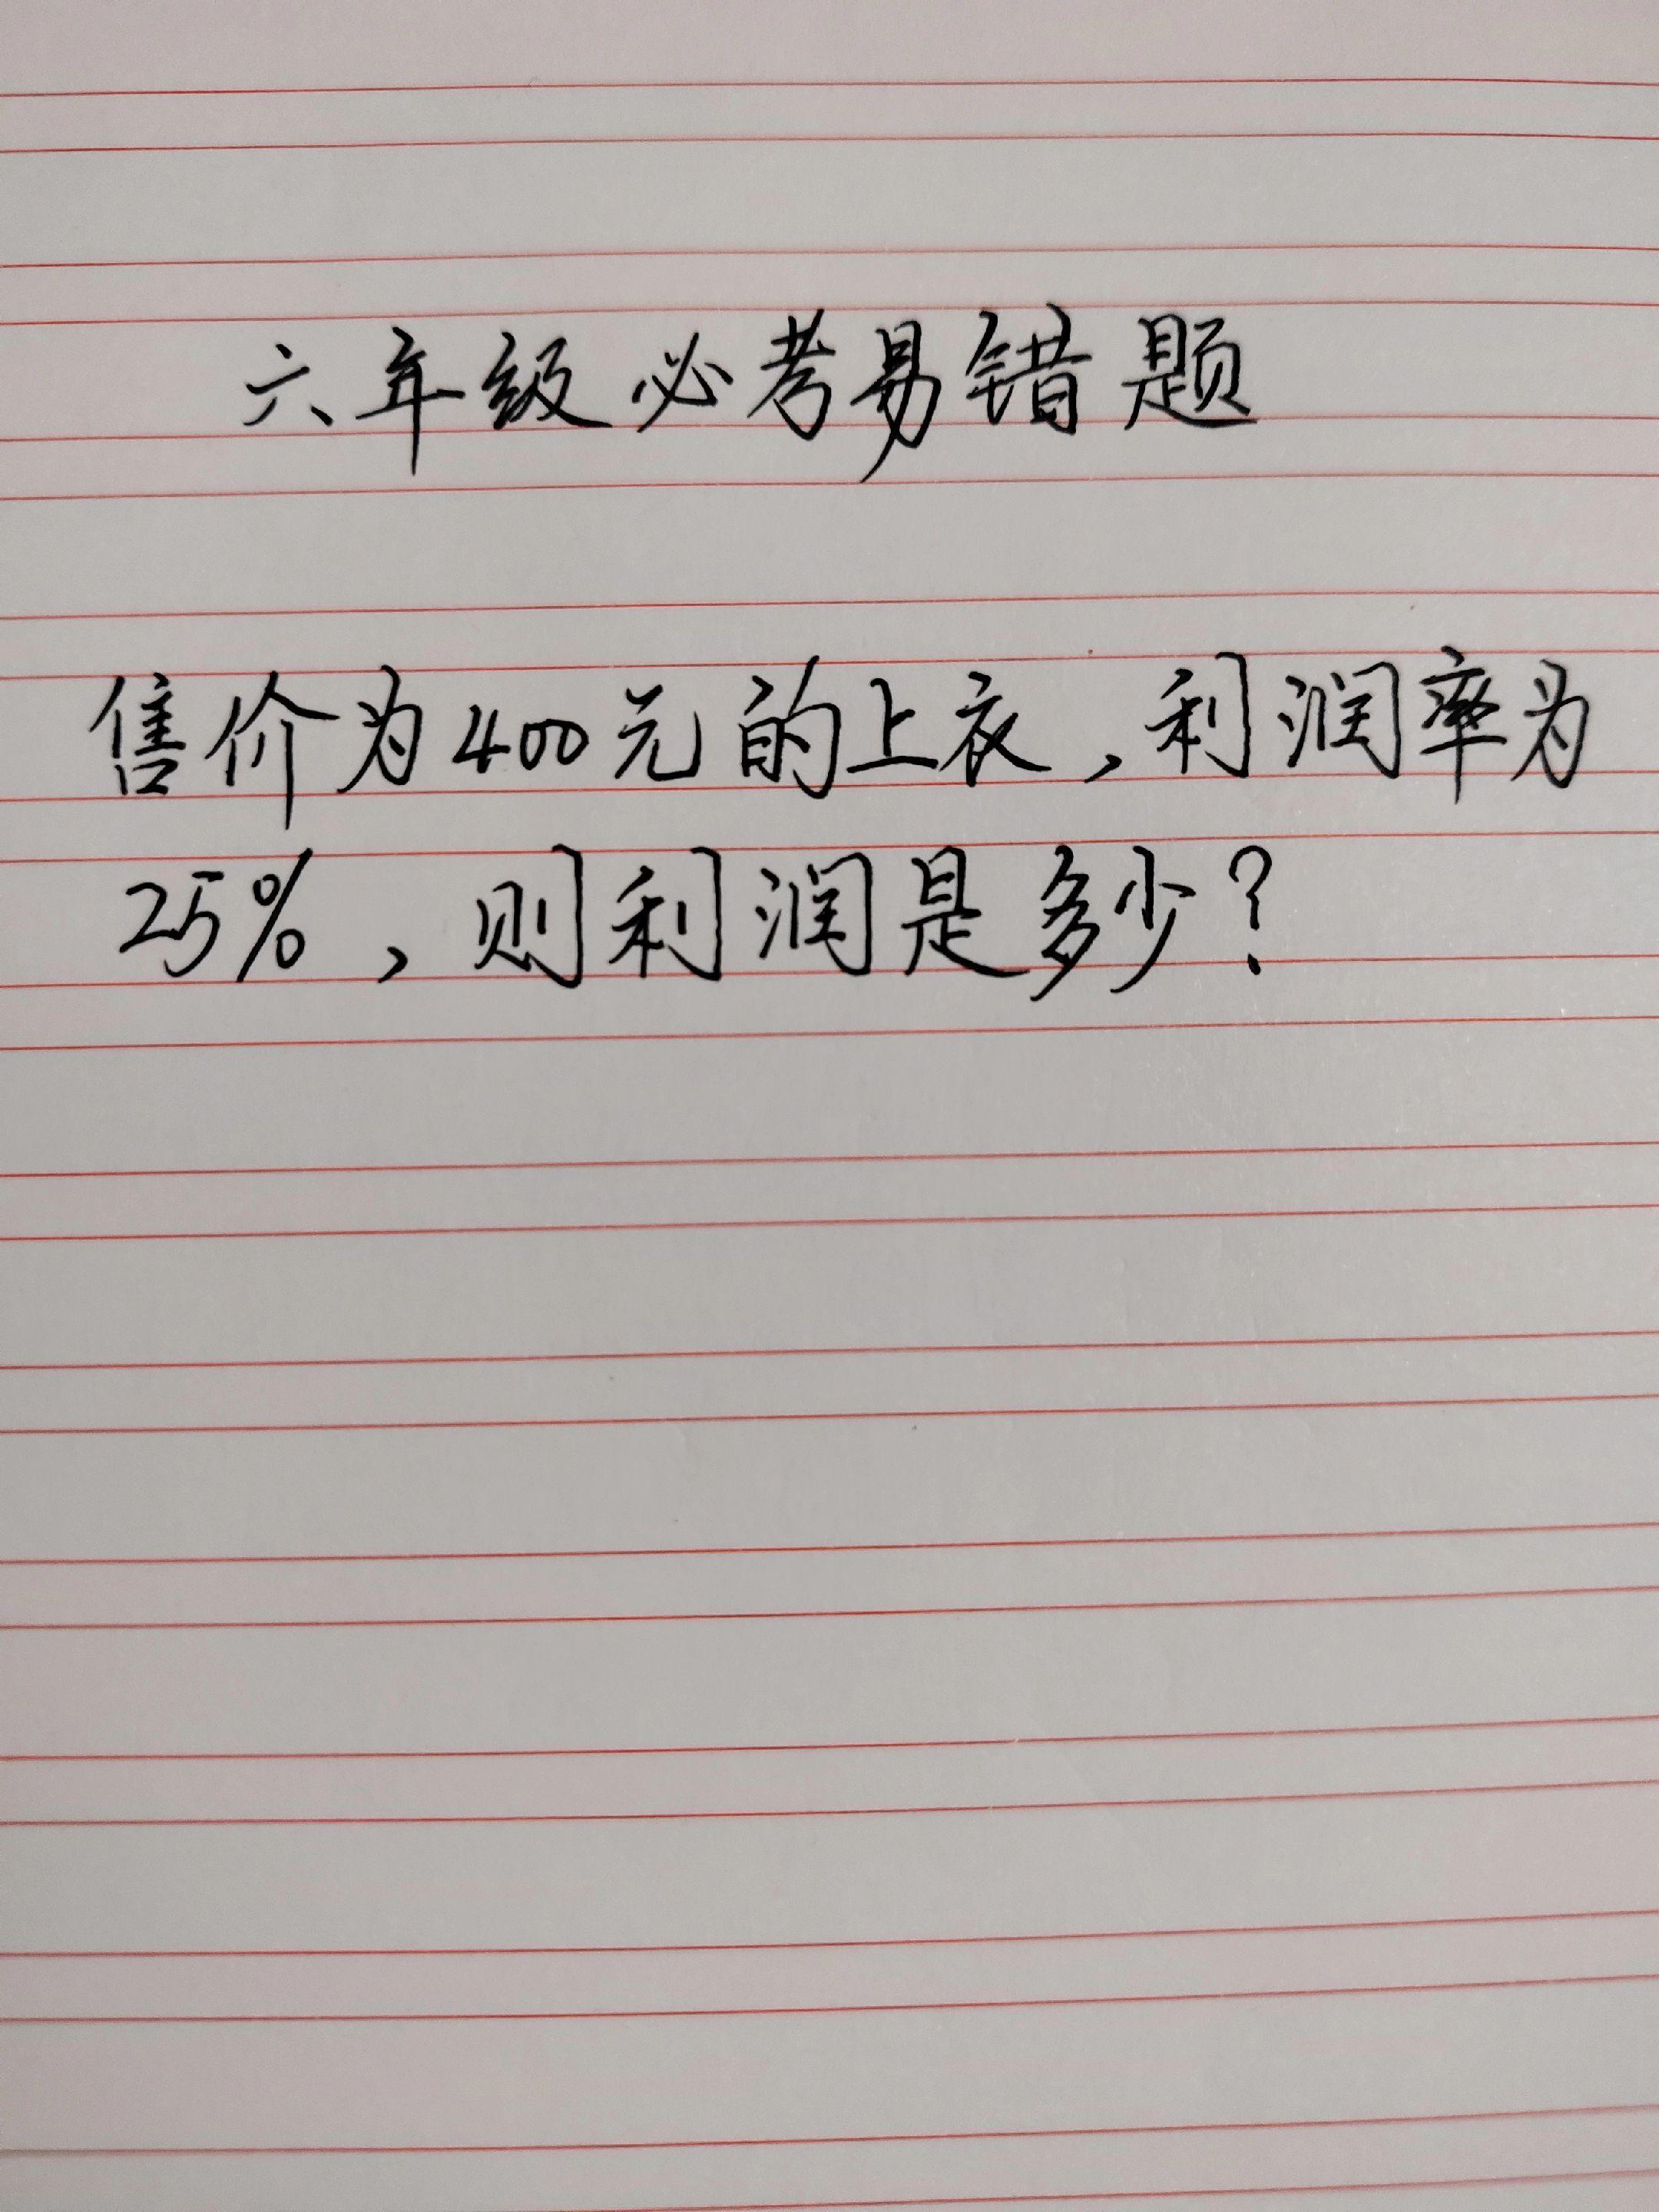 六年级必考易错题
售价为400元的上衣,利润率为
25%,则利润是多少?